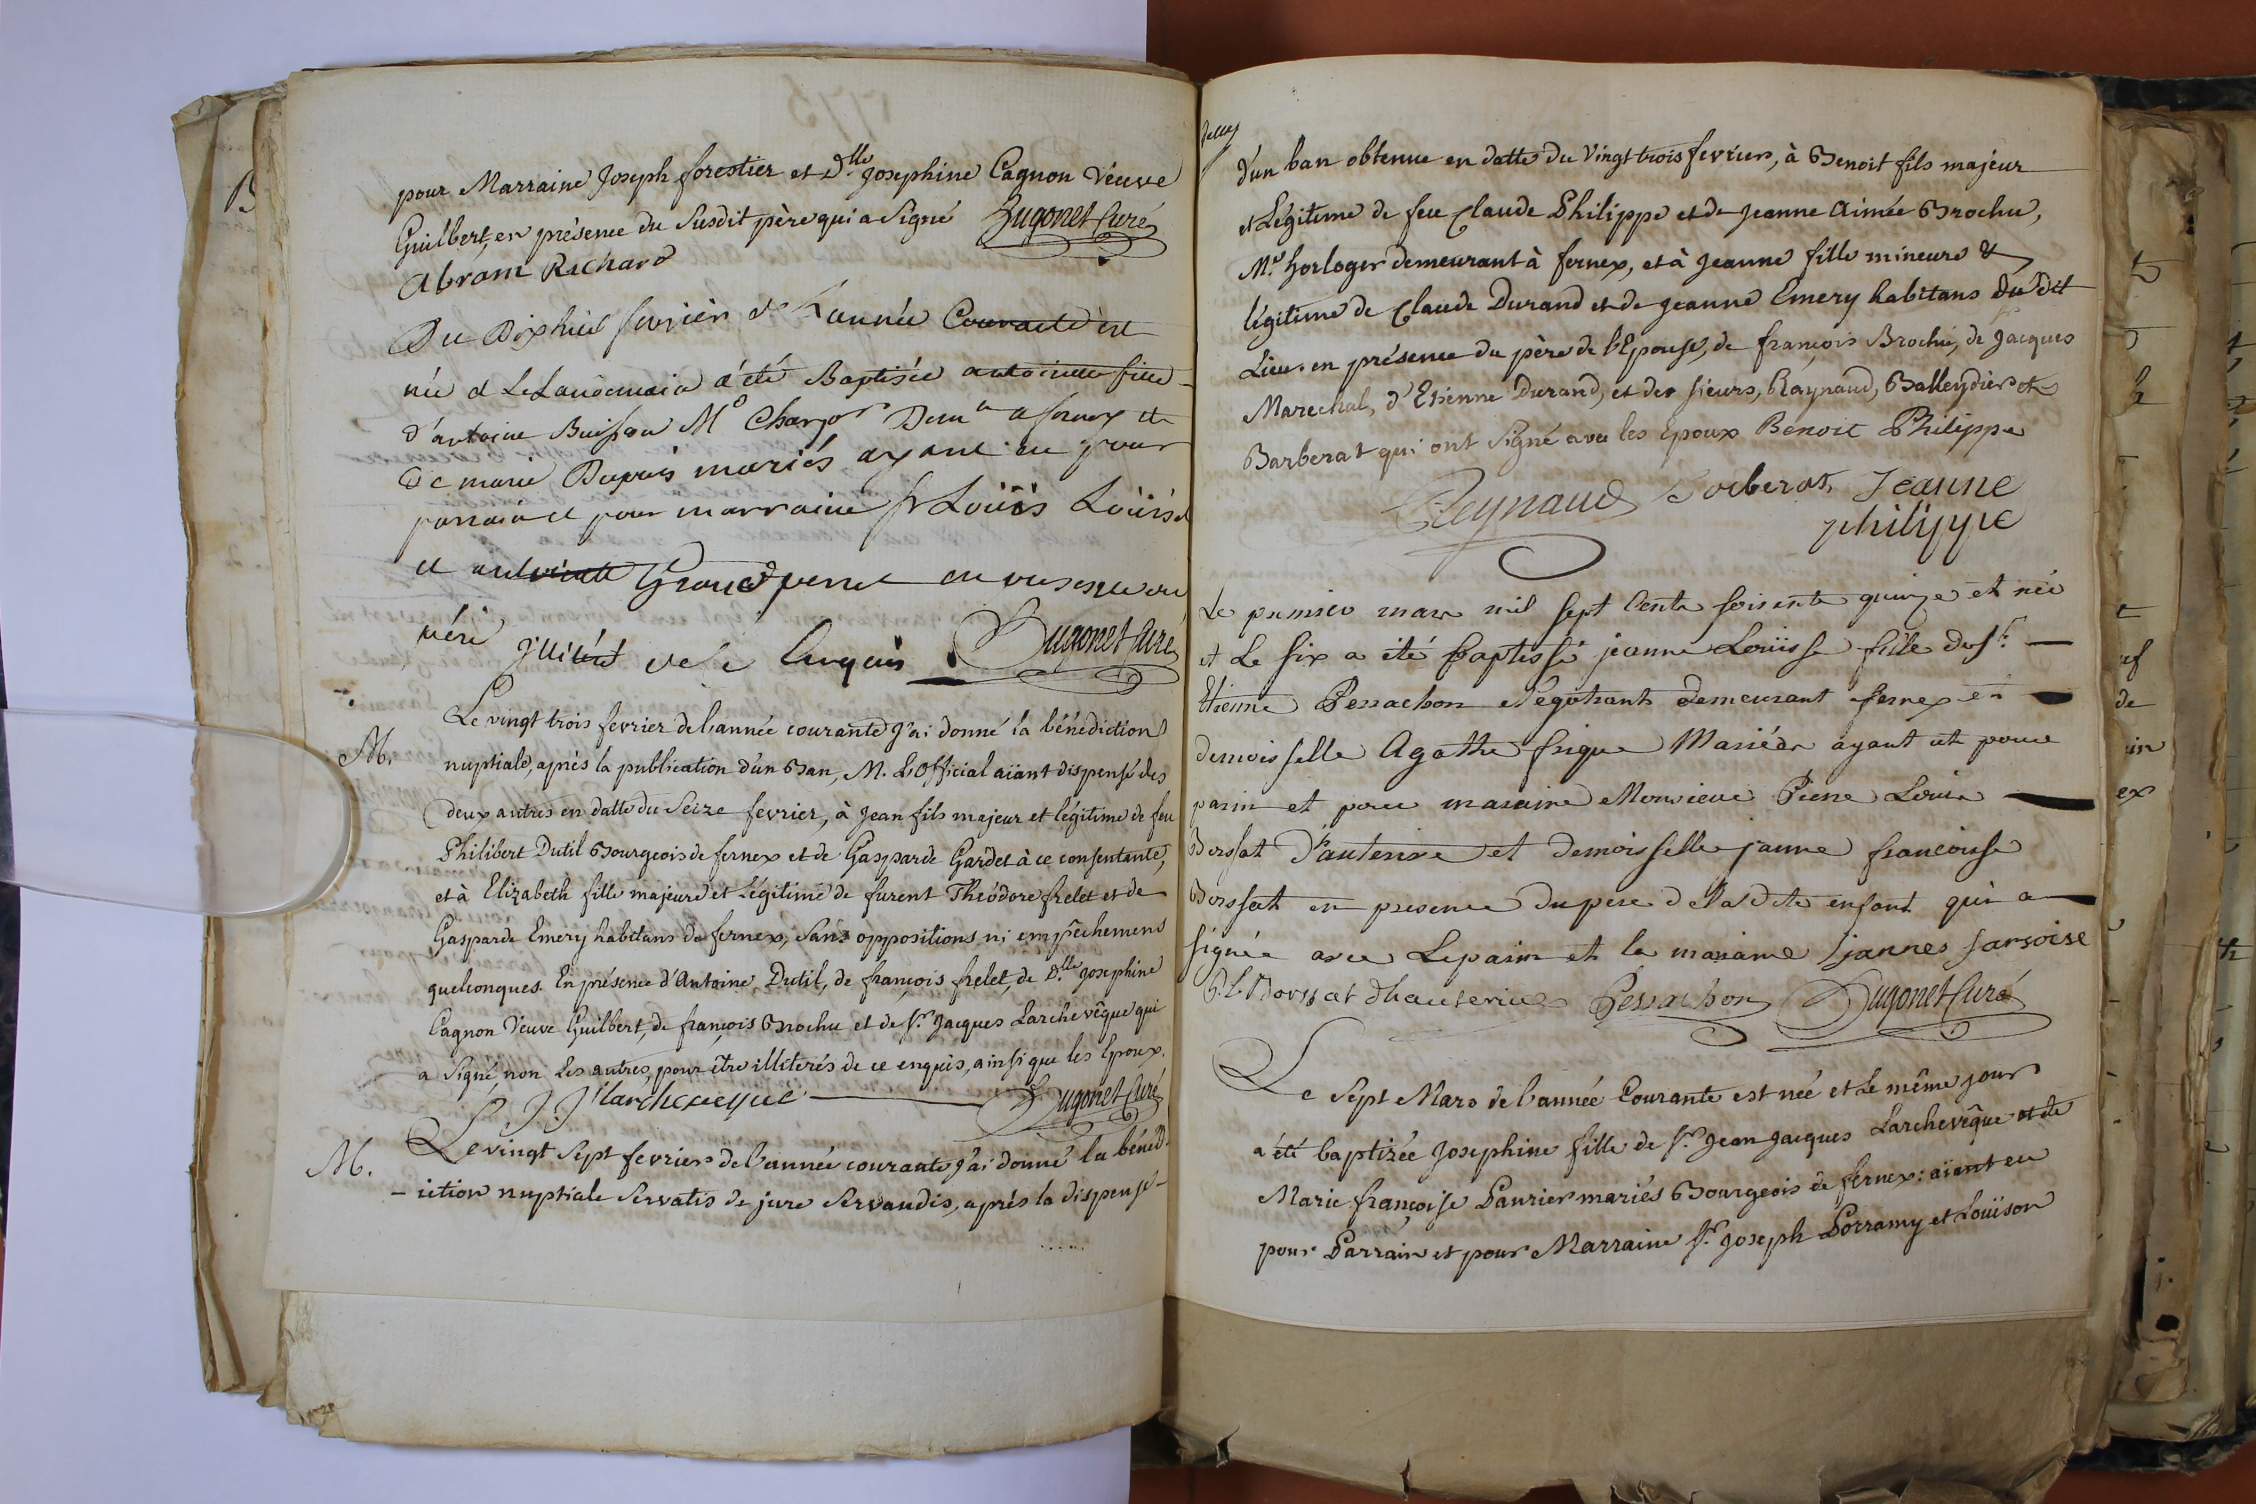 pour Marraine Joseph forestier et Dlle Josephine Cagnon Veuve
Guilbert, en présence du Susdit père qui a Signé Dugonet Curé
Abram Richard
Du Dixhuit fevrier de L'année Courante est
née et Le Landemain a été Baptisée antoinette fille
d'antoine Buisson Me Charpr Demt a fernex et
de marie Dupuis mariés ayant eu pour
parrain et pour marraine sr Loüis Loüis
et antoinette Grandperret en presence du
père illitéré de ce enquis. Dugonet Curé
M.
Le vingt trois fevrier de l'année courante J'ai donné la bénédiction
nuptiale, après la publication d'un Ban, M. L'Official aïant dispensé des
deux autres en datte du Seize fevrier, à Jean fils majeur et légitime de feu
Philibert Dutil Bourgeois de fernex et de Gasparde Gardet à ce consentante,
et à Elizabeth fille majeure et Légitime de furent Théodore frelet et de
Gasparde Emery habitans de fernex, Sans oppositions ni empêchemens
quelconques. En présence d'Antoine Dutil, de françois frelet, de Dlle Josephine
Cagnon Veuve Guilbert, de françois Brochu et de Sr Jacques Larchevêque qui
a Signé, non Les autres, pour être illiterés de ce enquis, ainsi que les Epoux.
J. J. Larcheveque Dugonet Curé
M.
Le vingt Sept fevrier de l'année courante J'ai donné la bénéd-
-iction nuptiale Servatis de jure Servandis, après la dispense-
d'un ban obtenue en datte du Vingt trois fevrier, à Benoit fils majeur
et Légitime de feu Claude Philippe et de Jeanne Aimée Brochu,
Me horloger demeurant à fernex, et à Jeanne fille mineure &
légitime de Claude Durand et de Jeanne Emery habitans du dit
Lieu. en présence du père de l'Epouse, de françois Brochu, de Jacques
Marechal, d'Etienne Durand, et des sieurs, Raynaud, Balleydier et
Barberat qui ont Signé avec les Epoux Benoit Philippe
Reynaud Barberat Jeanne
philippe
Le premier mars mil sept Cents soisente quinze et née
et Le six a été Baptissé jeanne Loüisse fille du sr
Etienne Perrachon Négotiant demeurant fernex et
demoisselle Agathe frique Mariés ayant ut pour
parin et pour maraine Monsieur Piere Louis
Borssat D'auterive et demoisselle janne francoise
Borssat en presence du pere de Ladite enfant qui a
signée avec Le parin et la maraine janne fransoise
P. L. Borssat dhauterive Perrachon Dugonet Curé
Le Sept Mars de l'année Courante est née et Le même jour
a été baptizée Josephine fille de Sr Jean Jacques Larchevêque et de
Marie françoise Paurier mariés Bourgeois de fernex: aïant eu
pour Parrain et pour Marraine Sr Joseph Porramy et Loüison